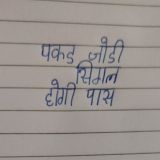 पकड जोडी
सिगल
होगी पास